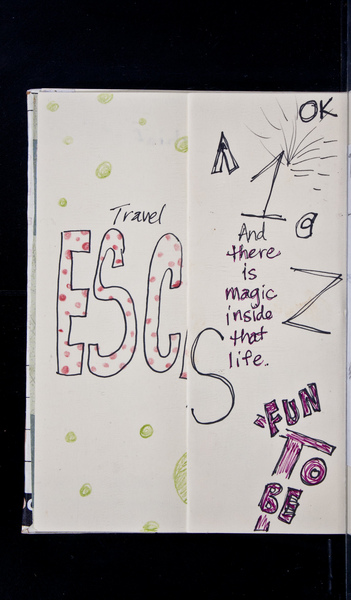 OK
A
1
a
Travel
ESC
And
there
is
magic
inside
that
life..
Z
S
"FUN
TO
BE